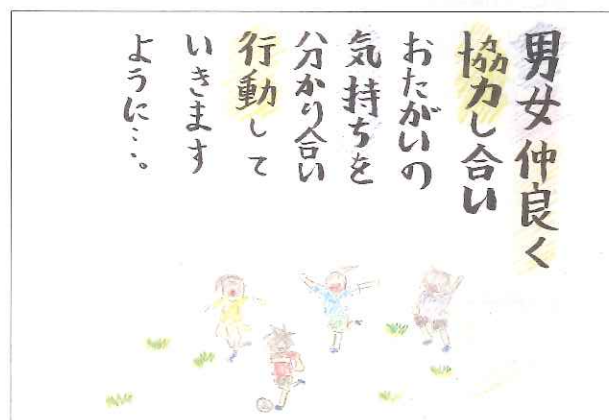 男女仲良く
協力し合い
おたがいの
気持ちを
分かり合い
行動して
いきます
ように…。